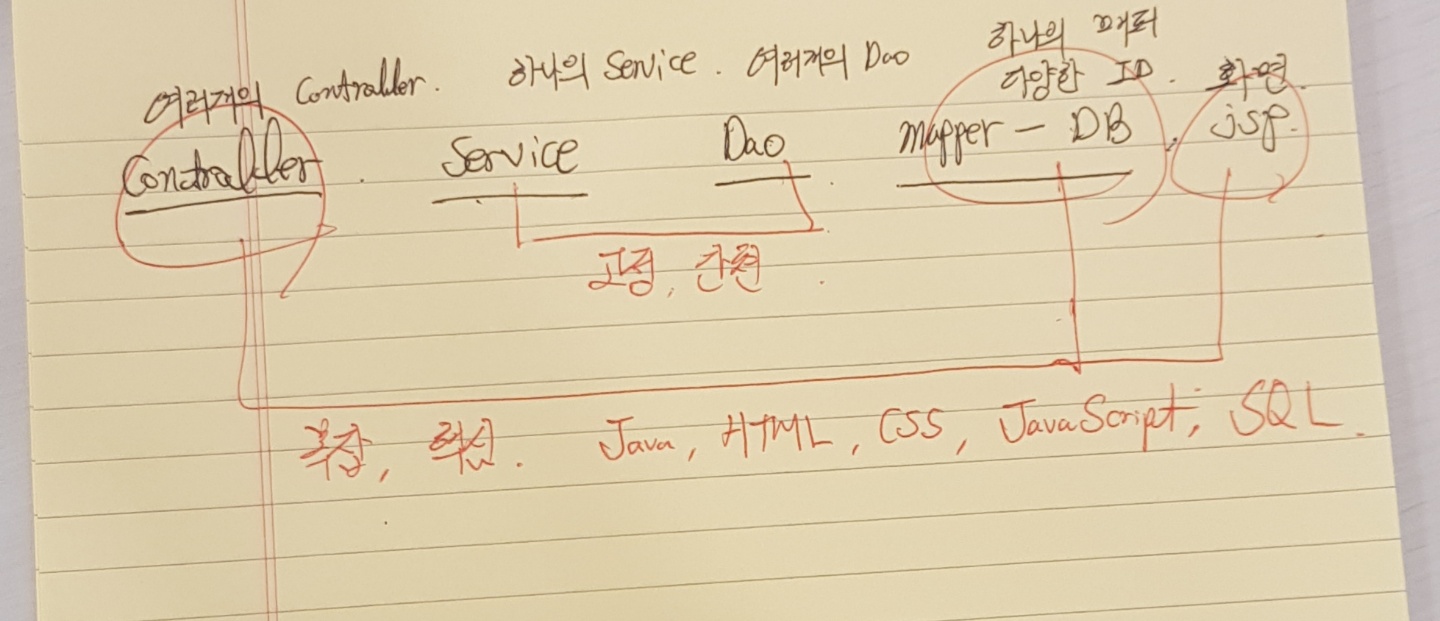 하나의 매퍼
여러개의 Contraller. 하나의 Service. 여러개의 Dao 다양한 ID. 화면.
Contraller. Service Dao. mapper - DB, jsp.
고정, 간편.
복잡, 핵심. Java, HTML, CSS, JavaScript, SQL.